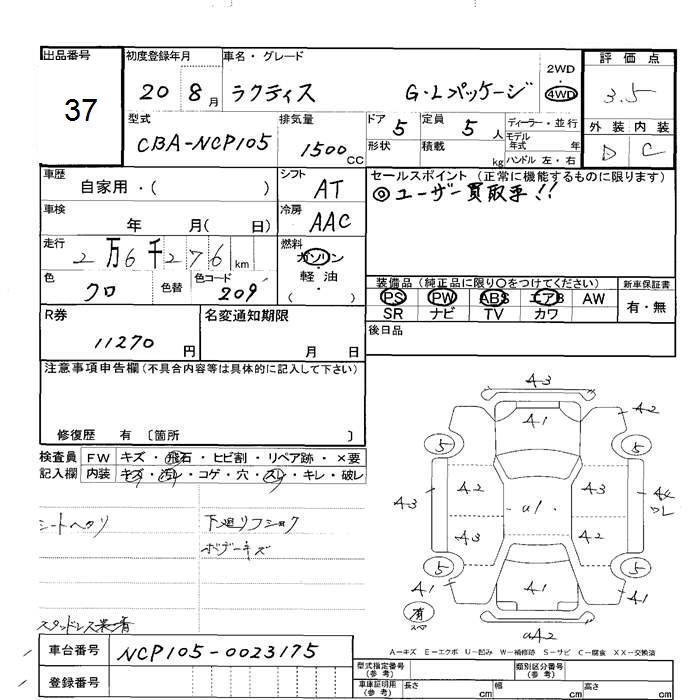 出品番号
37
初度登録年月
20 8月
車名・グレード
ラクティス G・Lパッケージ
2WD
・
4WD
評価点
3.5
型式
CBA-NCP105
排気量
1500 CC
ドア 5
形状
定員 5 人
積載 kg
ディーラー・並行
モデル
年式 年
ハンドル 左・右
外装 内装
D C
車歴
自家用・( )
シフト
AT
セールスポイント (正常に機能するものに限ります)
◎ユーザー買取車!!
車検
年 月( 日)
冷房
AAC
走行
2万6千276km
燃料
ガソリン
・
軽油
・
( )
色
クロ
色替
色コード
209
装備品(純正品に限り○をつけてください)
新車保証書
PS PW ABS エアB AW
SR ナビ TV カワ
有・無
R券
11270円
名変通知期限
月 日
後日品
注意事項申告欄(不具合内容等は具体的に記入して下さい)
修復歴 有 〔箇所 〕
検査員
記入欄
FW キズ・飛石・ヒビ割・リペア跡・×要
内装 キズ・汚れ・コゲ・穴・スレ・キレ・破レ
シートヘタリ
下廻リフショク
ボデーキズ
スタッドレス装着
A3
A1
A2
5 5
A2 A3
A3
u1.
A3 A2
5 5
A1 A1 A1
有
スペア
uA2
A－キズ E－エクボ U－凹み W－補修跡 S－サビ C－腐食 XX－交換済
車台番号
NCP105-0023175
登録番号
型式指定番号
(参考)
類別区分番号
(参考)
車庫証明用
(参考)
長さ cm 幅 cm 高さ cm